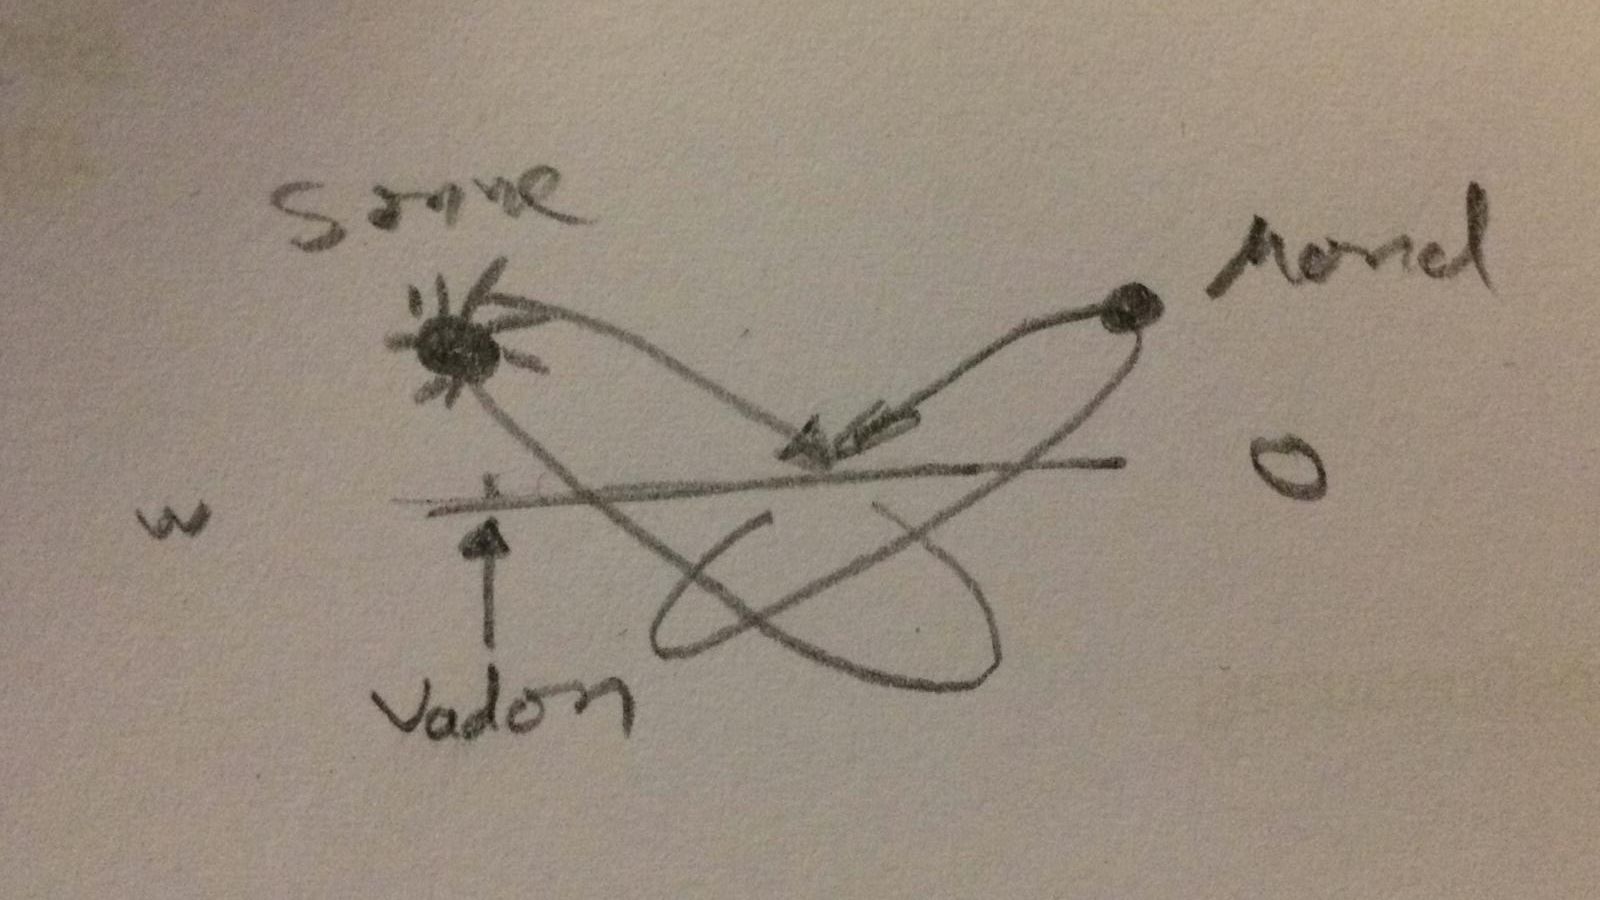 Sonne
Mond
W
O
Vadon